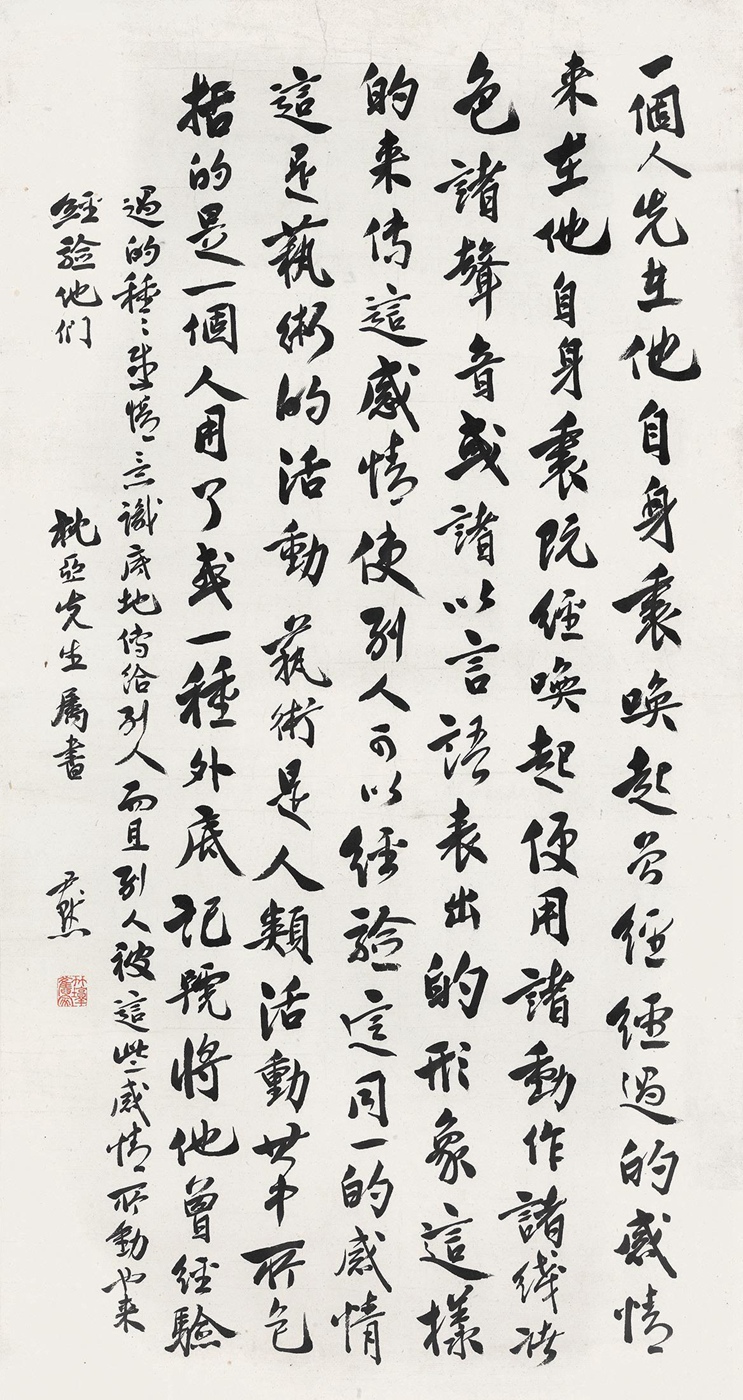 一個人先在他自身裏喚起曾經經過的感情
来在他自身裏既經喚起便用諸動作諸綫諸
色諸聲音或諸以言語表出的形象這樣
的来傳這感情使别人可以經驗這同一的感情
這是藝術的活動藝術是人類活動其中所包
括的是一個人用了或一種外底記號將他曾經驗
過的種々感情意識底地傳給别人而且别人被這些感情所動也来
經驗他们
枕亞先生属書
尹默
竹溪舊家